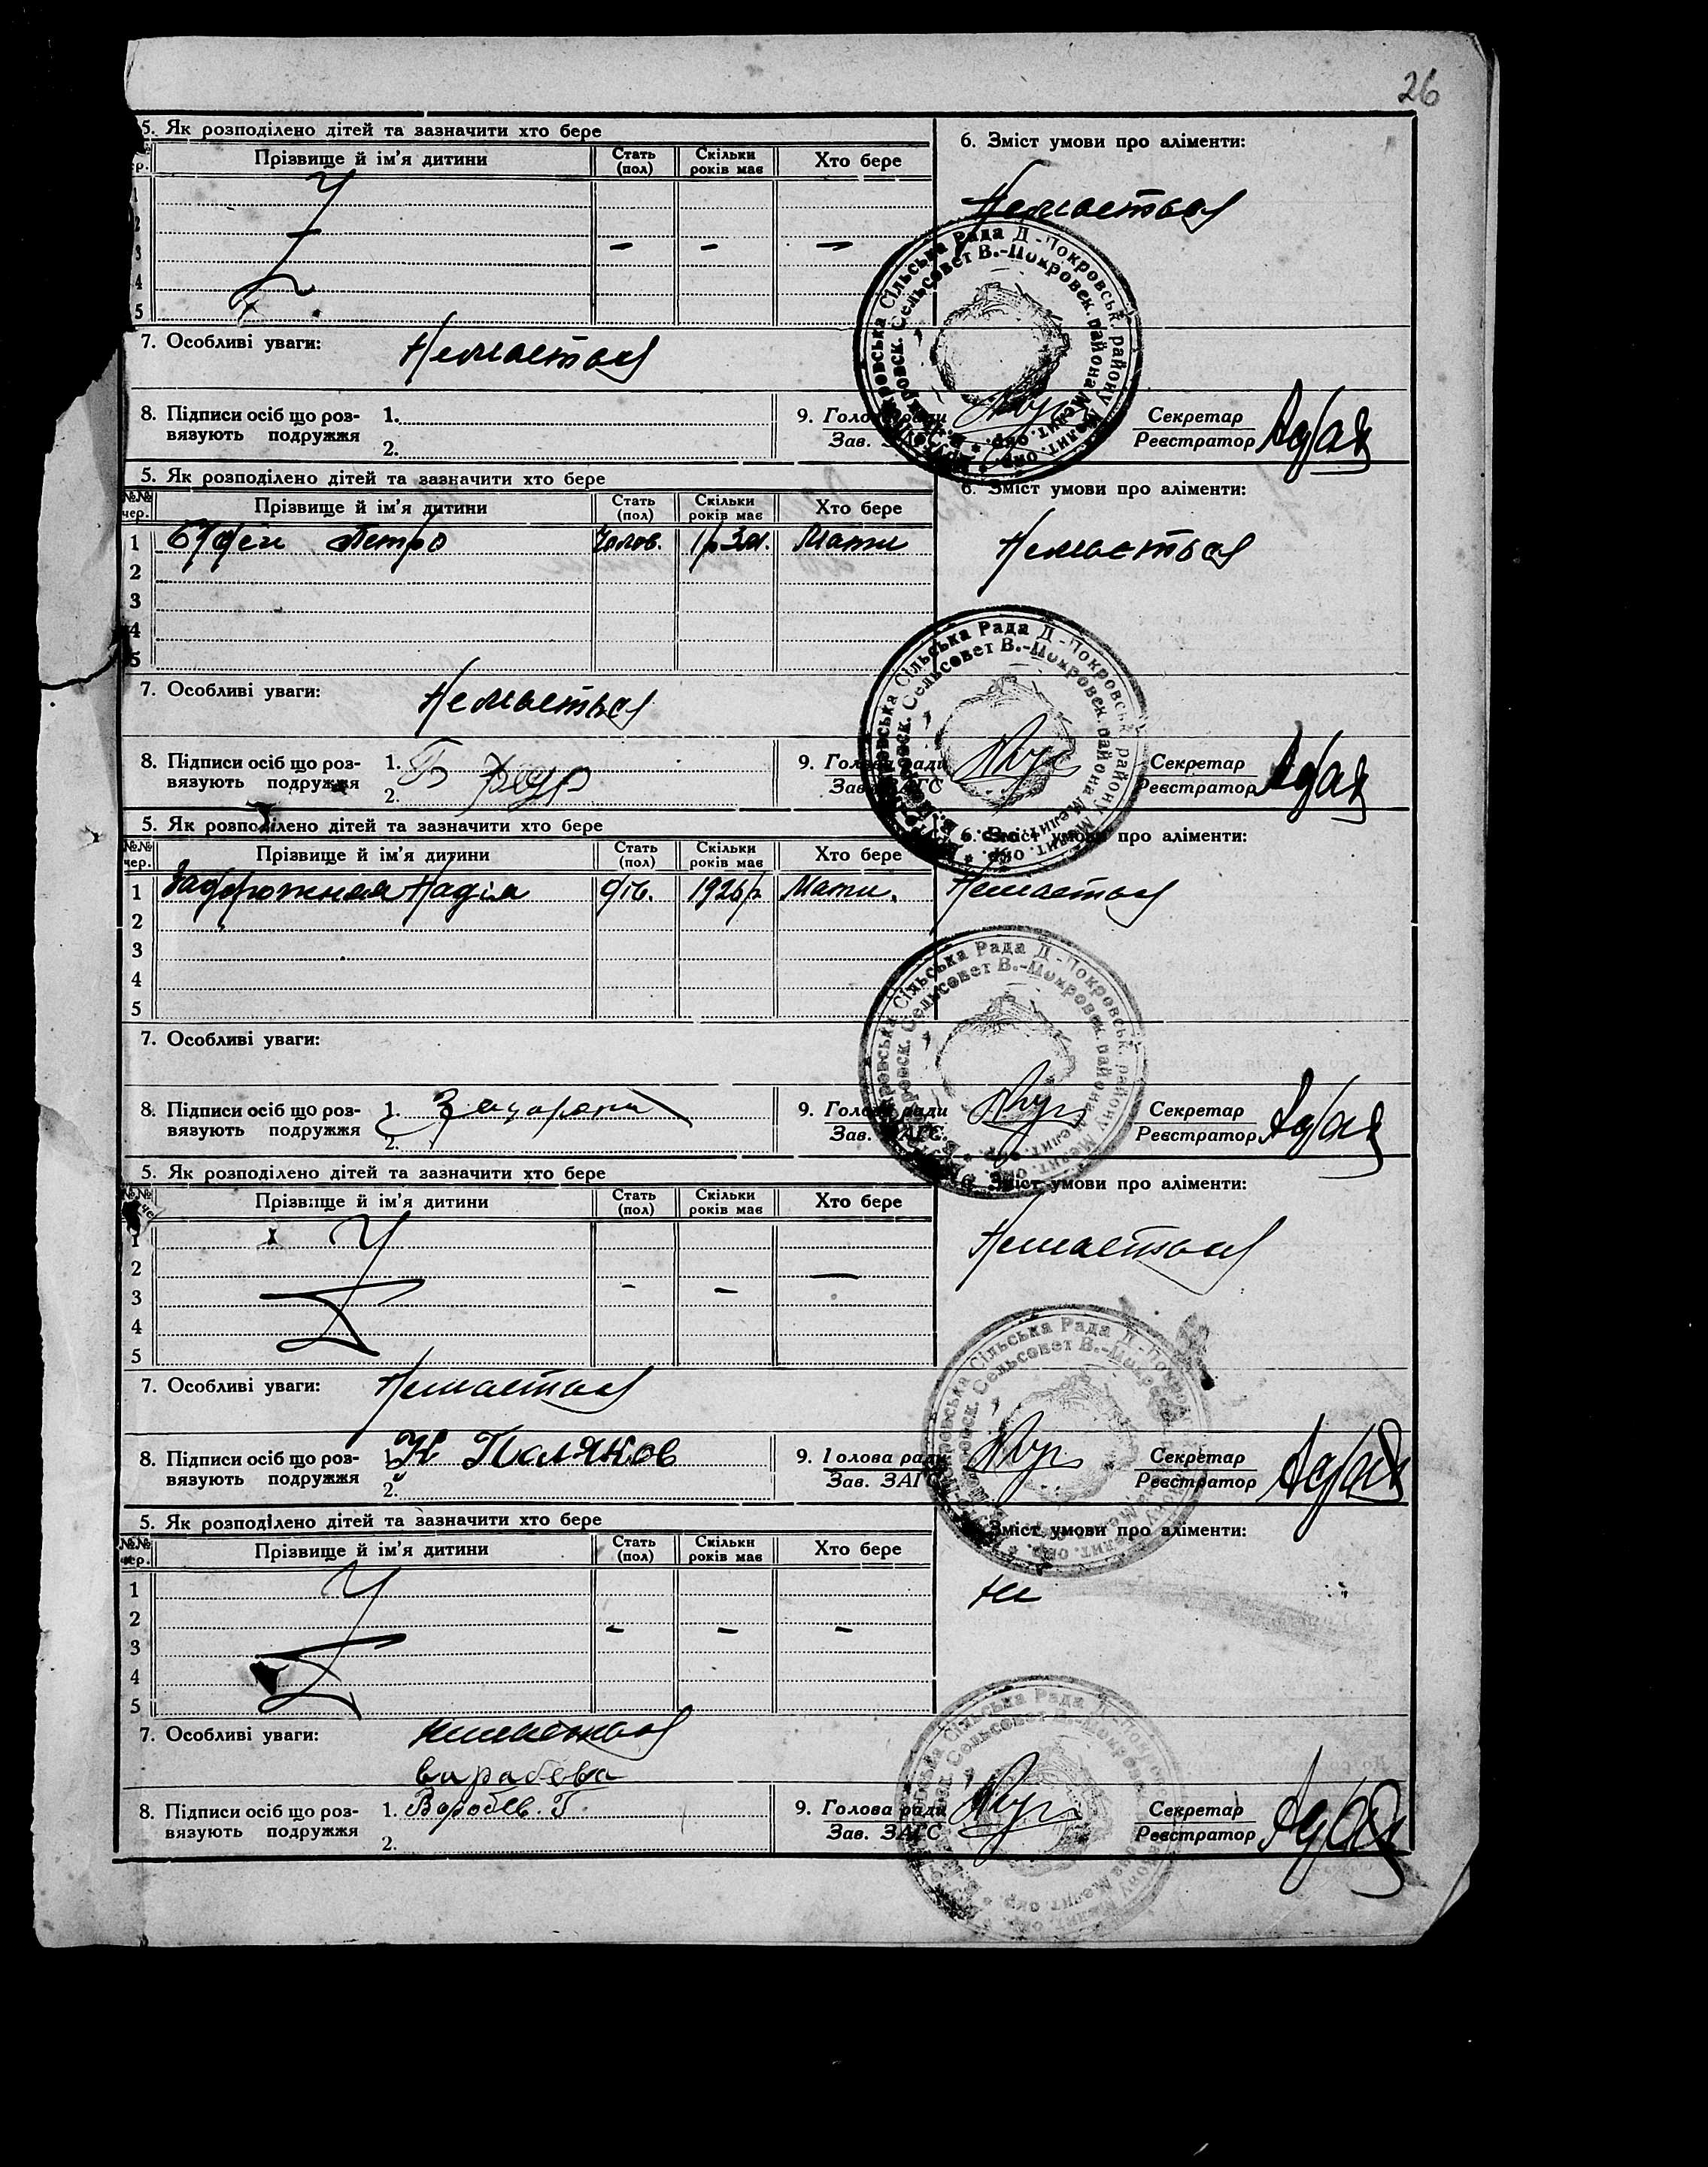 26
5. Як розподілено дітей та зазначити хто бере
6. Зміст умови про аліменти:
Прізвище й ім'я дитини Стать (пол) Скільки років має Хто бере
Немається
2
3
4
5
7. Особливі уваги: Немається
8. Підписи осіб що роз-вязують подружжя 1. 2.
9. Голова ради Зав. Секретар Реєстратор
Сільська Рада Д-Покровськ. району Мелит. окр.
Сельсовет В.-Покровск. района Мелит. окр.
5. Як розподілено дітей та зазначити хто бере
6. Зміст умови про аліменти:
№№ чер. Прізвище й ім'я дитини Стать (пол) Скільки років має Хто бере
1 Петро Чолов. 1р 3м. Мати
Немається
2
3
4
5
7. Особливі уваги: Немається
8. Підписи осіб що роз-вязують подружжя 1. 2.
9. Голова ради Зав. ЗАГС Секретар Реєстратор
Сільська Рада Д-Покровськ. району Мелит. окр.
Сельсовет В.-Покровск. района Мелит. окр.
5. Як розподілено дітей та зазначити хто бере
6. Зміст умови про аліменти:
№№ чер. Прізвище й ім'я дитини Стать (пол) Скільки років має Хто бере
1 Надія 1926р Мати.
Немається
2
3
4
5
7. Особливі уваги:
8. Підписи осіб що роз-вязують подружжя 1. 2.
9. Голова ради Зав. ЗАГС Секретар Реєстратор
Сільська Рада Д-Покровськ. району Мелит. окр.
Сельсовет В.-Покровск. района Мелит. окр.
5. Як розподілено дітей та зазначити хто бере
6. Зміст умови про аліменти:
№№ Прізвище й ім'я дитини Стать (пол) Скільки років має Хто бере
1
Немається
2
3
4
5
7. Особливі уваги: Немається
8. Підписи осіб що роз-вязують подружжя 1. Поляков 2.
9. Голова ради Зав. ЗАГС Секретар Реєстратор
Сільська Рада Д-Покровськ. району Мелит. окр.
Сельсовет В.-Покровск. района Мелит. окр.
5. Як розподілено дітей та зазначити хто бере
Зміст умови про аліменти:
№№ чер. Прізвище й ім'я дитини Стать (пол) Скільки років має Хто бере
1
Не
2
3
4
5
7. Особливі уваги: Немається
варабева
8. Підписи осіб що роз-вязують подружжя 1. Воробев. Г. 2.
9. Голова ради Зав. ЗАГС Секретар Реєстратор
Сільська Рада Д-Покровськ. району Мелит. окр.
Сельсовет В.-Покровск. района Мелит. окр.